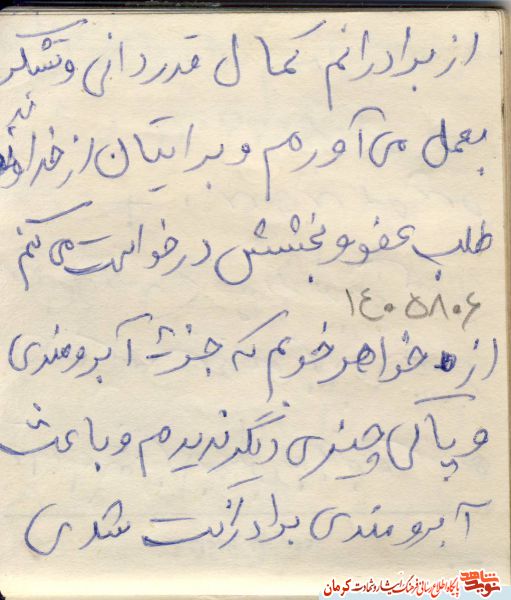 از برادرانم کمال قدردانی و تشکر
بعمل می آورم و برایتان از خداوند
طلب عفو و بخشش درخواست می کنم
۱۴۰۵۸۰۶
از خواهر خوبم که جز آبرومندی
و پاکی چیزی دیگر ندیدم و باعث
آبرومندی برادرانت شدی
نوید شاهد
پایگاه اطلاع رسانی فرهنگ ایثار و شهادت کرمان